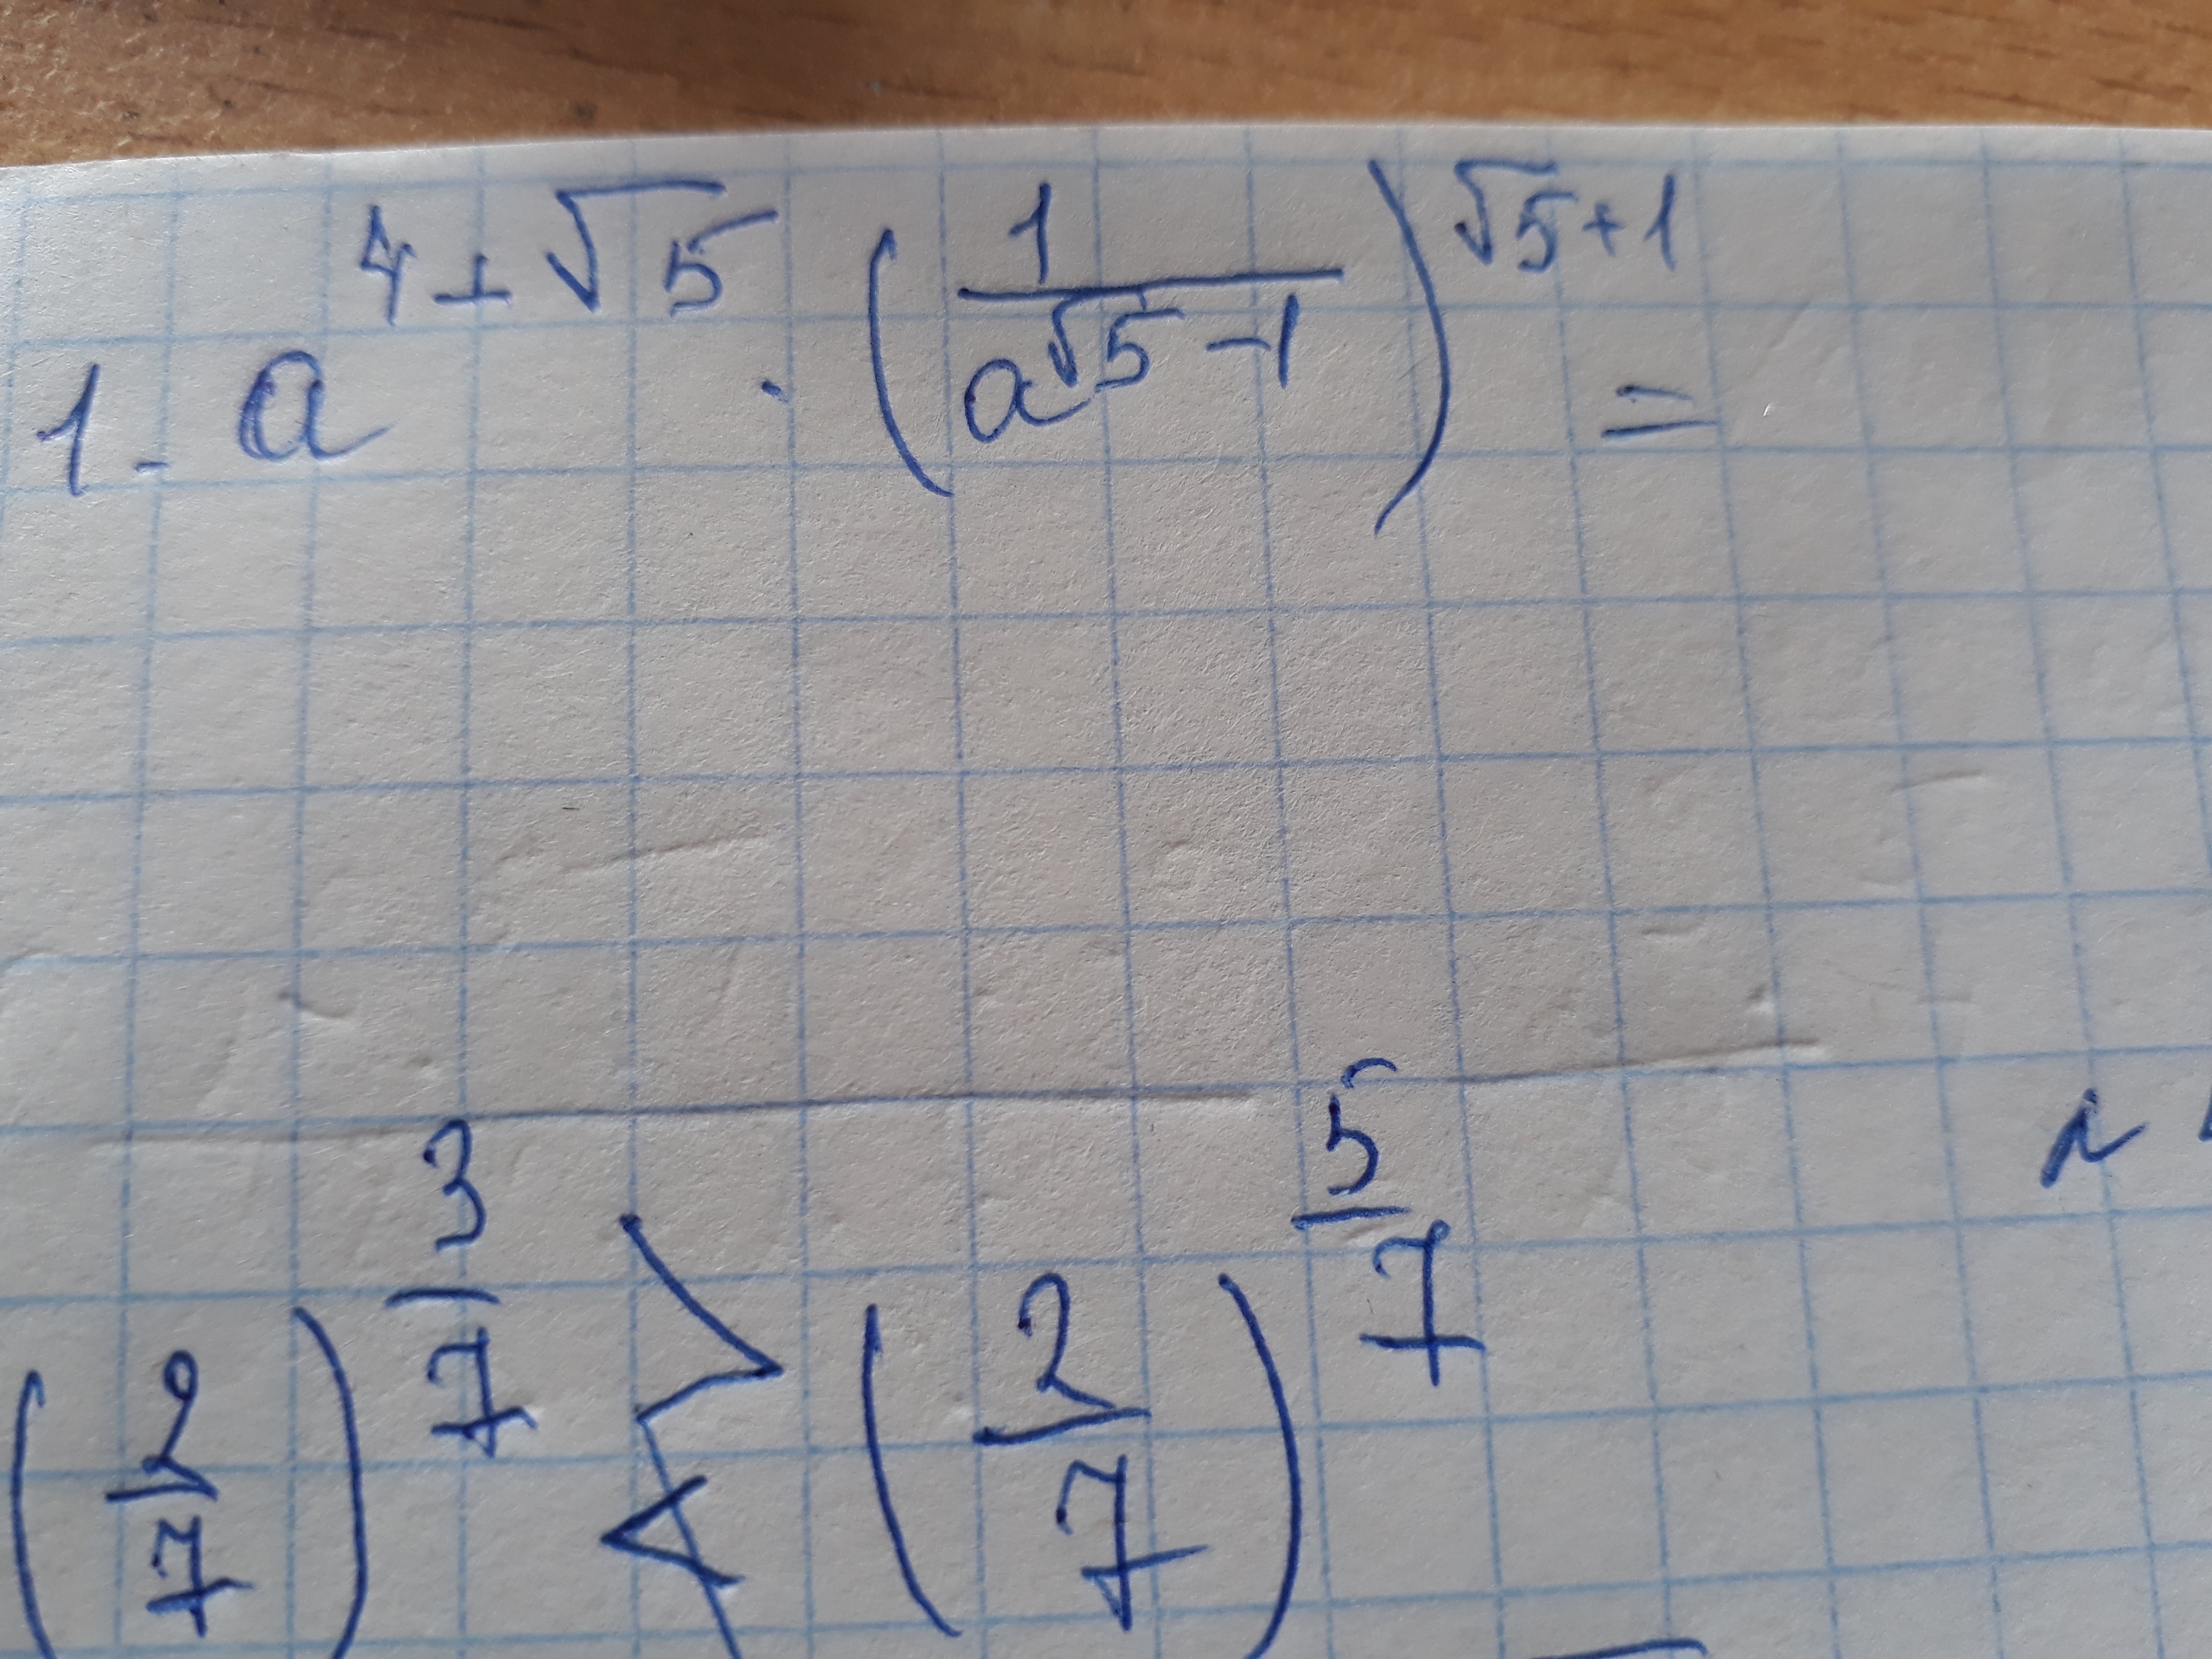 1. a^{4+√5} · (1/a^{√5-1})^{√5+1} =
(2/7)^{3/7} > < (2/7)^{5/7}